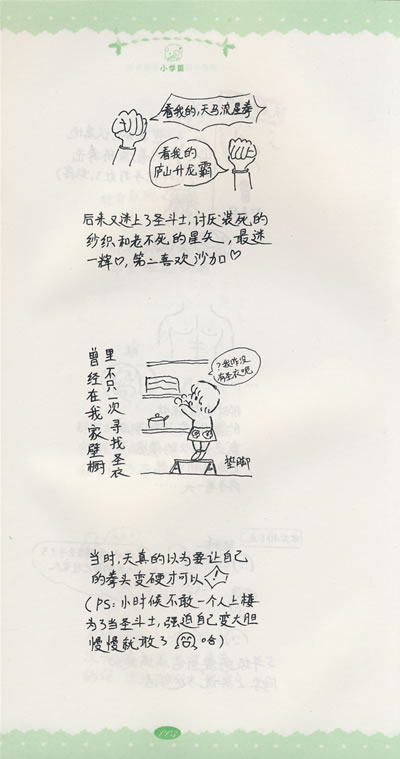 小学篇
看我的,天马流星拳
看我的
庐山升龙霸
后来又迷上了圣斗士,讨厌装死的
纱织和老不死的星矢,最迷
一辉♡,第二喜欢沙加♡
曾经在我家壁橱
里不只一次寻找圣衣
?我咋没
有圣衣呢
垫脚
当时,天真的以为要让自己
的拳头变硬才可以!
(PS:小时候不敢一个人上楼
为了当圣斗士,强迫自己变大胆
慢慢就敢了 哈)